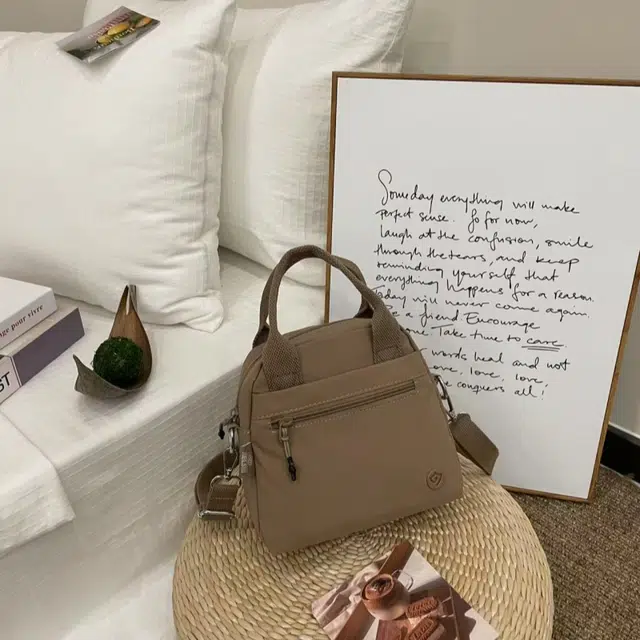 Someday everything will make
perfect sense. So for now,
laugh at the confusion, smile
through the tears, and keep
reminding yourself that
everything happens for a reason.
will never come again.
a friend Encourage
Take time to care
words heal and not
love, love,
conquers all!
age pour vivre
ST